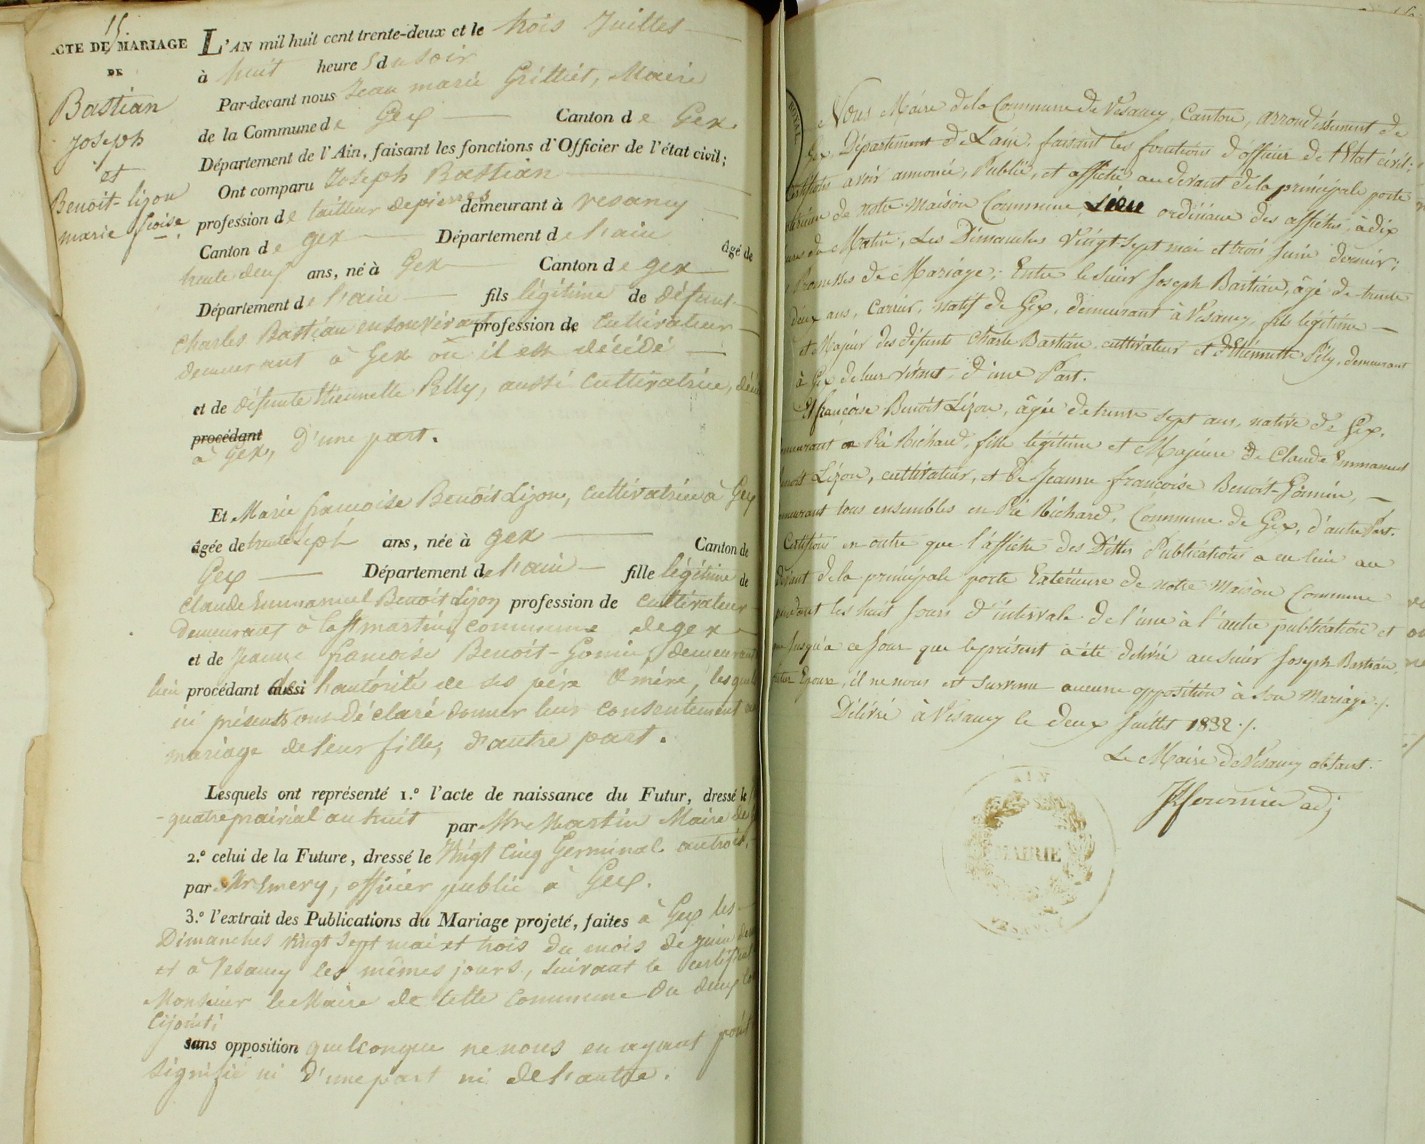 15.
ACTE DE MARIAGE
DE
Bastian
Joseph
et
Benoit-lizon
marie fsoise
L'AN mil huit cent trente-deux et le trois Juillet
à huit heures du soir
Par-devant nous Jean marie Grilliet, Maire
de la Commune de Gex Canton de Gex.
Département de l'Ain, faisant les fonctions d'Officier de l'état civil;
Ont comparu Joseph Bastian
profession de tailleur de pierres demeurant à vesancy
Canton de gex Département de l'ain âgé de
trente deux ans, né à Gex Canton de gex
Département de l'ain fils légitime de défunt
Charles Bastian en son vivant profession de cultivateur
demeurant à Gex où il est décédé
et de défunte Etiennette Pelly, aussi cultivatrice,
procédant
à Gex, d'une part.
Et Marie françoise Benoit Lizon, cultivatrice à Gex
âgée de trente sept ans, née à gex Canton de
Gex Département de l'ain fille légitime de
Claude Emmanuel Benoit Lizon profession de cultivateur
demeurant à commune de gex
et de Jeanne françoise Benoit-Gonin, demeurant
lieu procédant aussi de l'autorité de ses père & mère, lesquels
ici présents ont déclaré donner leur consentement au
mariage de leur fille, d'autre part.
Lesquels ont représenté 1.º l'acte de naissance du Futur, dressé le
quatre prairial an huit par Mr Martin Maire de
2.º celui de la Future, dressé le Vingt cinq Germinal an trois,
par Mr Emery, officier public à Gex.
3.º l'extrait des Publications du Mariage projeté, faites à Gex les
Dimanches vingt sept mai et trois du mois de juin
et à Vesancy les mêmes jours, suivant le certificat
Monsieur le Maire de cette commune du deux
Cijoint;
sans opposition quelconque ne nous en ayant point
signifié ni d'une part ni de l'autre.
Nous Maire de la Commune de Vesancy, Canton, arrondissement de
Gex, Département de Lain, faisant les fonctions d'officier de l'Etat civil;
Certifions avoir annoncé, Publié, et affiché au devant de la principale porte
de notre Maison Commune, Lieu ordinaire des affiches, à dix
heures du Matin, Les Dimanches Vingt-sept mai et trois Juin dernier;
Promesses de Mariage; Entre le sieur Joseph Bastian, âgé de trente
deux ans, Carrier, natif de Gex, demeurant à Vesancy, fils légitime
et Majeur des défunts Charle Bastian, cultivateur et d'Etiennette Pelly, demeurant
à Gex de leur vivant, d'une Part.
Et françoise Benoit Lizon, âgée de trente sept ans, native de Gex,
demeurant en Pré Richard, fille légitime et Majeure de Claude Emmanuel
Benoit Lizon, cultivateur, et de Jeanne françoise Benoit-Gonin,
demeurant tous ensembles en Pré Richard, Commune de Gex, d'autre Part.
Certifions en outre que l'affiche des Dittes Publications a eu lieu au
devant de la principale porte Extérieure de notre Maison Commune
pendant les huit Jours d'intervale de l'une à l'autre publication et
Jusqu'a ce Jour que le présent a été délivré au sieur Joseph Bastian
futur Epoux, il ne nous est survenu aucune opposition à son Mariage./.
Délivré à Vesancy le deux Juillet 1832./.
Le Maire de Vésancy absent.
fournier adj
AIN
MAIRIE